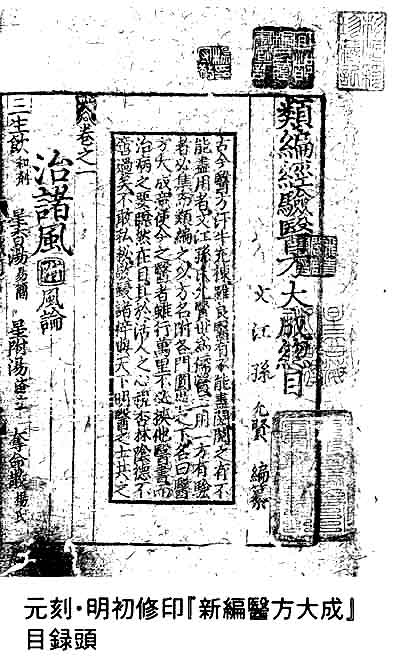 類編經驗醫方大成總目
文江孫允賢編纂
古今醫方汗牛充棟雖良醫有不能盡閱閱之有不
能盡用者文江孫氏醫世為儒醫用一方有驗
者必集而類編之以方名附各門之下名曰醫
方大成使今之醫者雖行萬里不必挾他醫書而
治病之要瞭然在目其於活人之心視杏林陰德不
啻過矣不敢私鋟諸梓與天下明醫之士共之
卷之一
治諸風 附風論
二生飲 和劑 星香湯 易簡 星附湯 奪命散 楊氏
元刻・明初修印『新編醫方大成』
目録頭